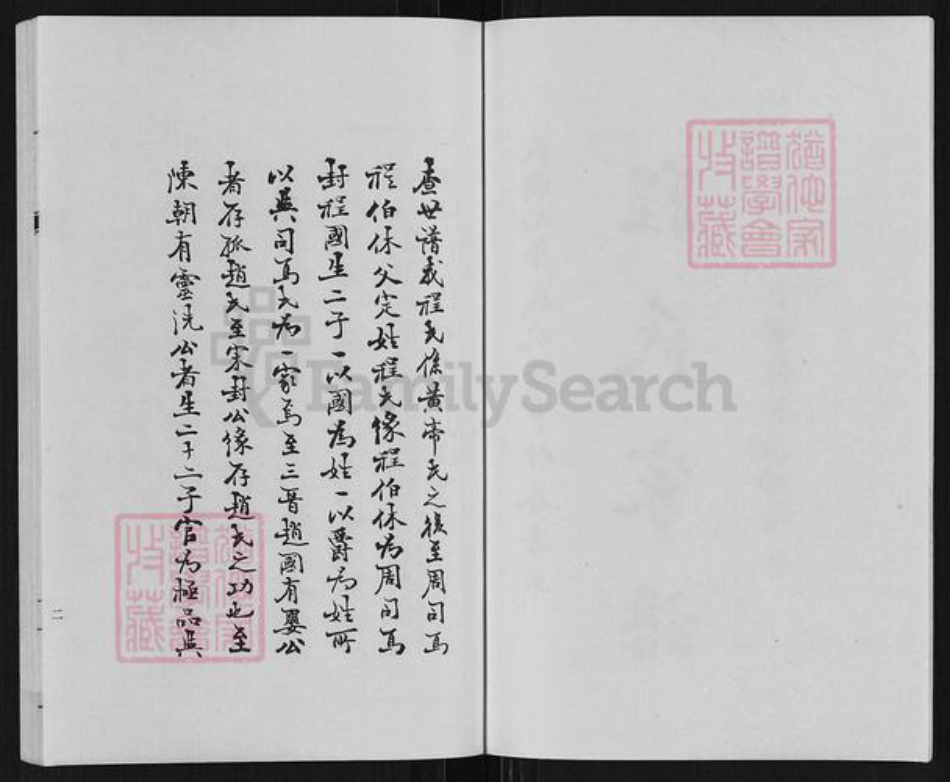 查世譜載程氏係黃帝氏之後至周司馬
程伯休父定姓程氏緣程伯休為周司馬
封程國生二子一以國為姓一以爵為姓所
以與司馬氏為一家焉至三晋趙國有嬰公
者存孤趙氏至宋封公緣存趙氏之功也至
陳朝有靈洗公者生二十二子官為極品與
二
猶他家
譜學會
收藏
猶他家
譜學會
收藏
FamilySearch